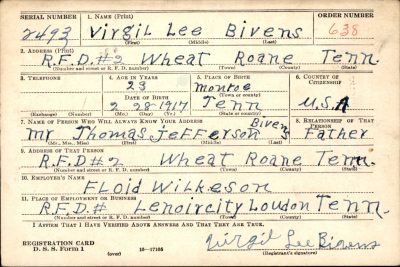 SERIAL NUMBER 1. NAME (Print) ORDER NUMBER
2493 Virgil Lee Bivens 638
(First) (Middle) (Last)
2. ADDRESS (Print)
R.F.D.#2 Wheat Roane Tenn
(Number and street or R. F. D. number) (Town) (County) (State)
3. TELEPHONE 4. AGE IN YEARS 5. PLACE OF BIRTH 6. COUNTRY OF CITIZENSHIP
23 monroe
(Town or county)
DATE OF BIRTH
2 28 1917 Tenn U.S.A
(Exchange) (Number) (Mo.) (Day) (Yr.) (State or country)
7. NAME OF PERSON WHO WILL ALWAYS KNOW YOUR ADDRESS 8. RELATIONSHIP OF THAT PERSON
mr Thomas Jefferson Bivens Father
(Mr., Mrs., Miss) (First) (Middle) (Last)
9. ADDRESS OF THAT PERSON
R.F.D#2 Wheat Roane Tenn.
(Number and street or R. F. D. number) (Town) (County) (State)
10. EMPLOYER'S NAME
Floid Wilkeson
11. PLACE OF EMPLOYMENT OR BUSINESS
R.F.D.# Lenoircity Loudon Tenn.
(Number and street or R. F. D. number) (Town) (County) (State)
I AFFIRM THAT I HAVE VERIFIED ABOVE ANSWERS AND THAT THEY ARE TRUE.
REGISTRATION CARD
D. S. S. Form 1 (over) 16—17105 Virgil Lee Bivens
(Registrant's signature)